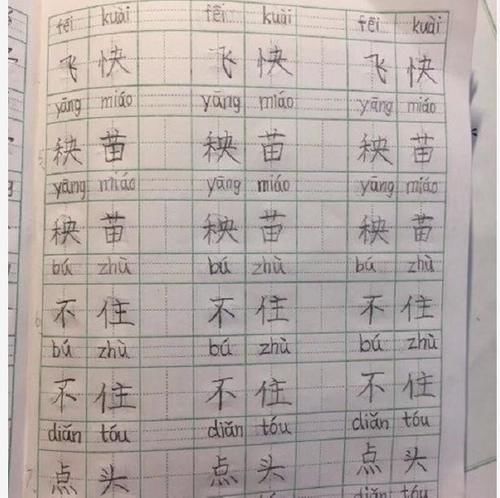 fēi kuài fēi kuài fēi kuài
飞快 飞快 飞快
yāng miáo yāng miáo yāng miáo
秧苗 秧苗 秧苗
yāng miáo yāng miáo yāng miáo
秧苗 秧苗 秧苗
bú zhù bú zhù bú zhù
不住 不住 不住
bú zhù bú zhù bú zhù
不住 不住 不住
diǎn tóu diǎn tóu diǎn tóu
点头 点头 点头